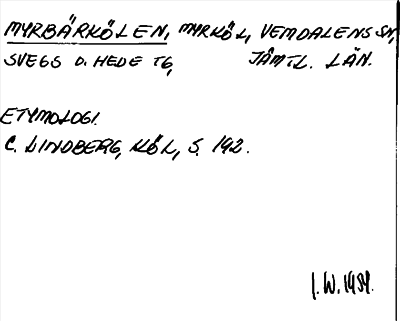 MYRBÄRKÖLEN, MYRKÖL, VEMDALENS SN,
SVEGS O. HEDE TG, JÄMTL. LÄN.
ETYMOLOGI.
C. LINDBERG, KÖL, S. 192.
I.W. 1984.